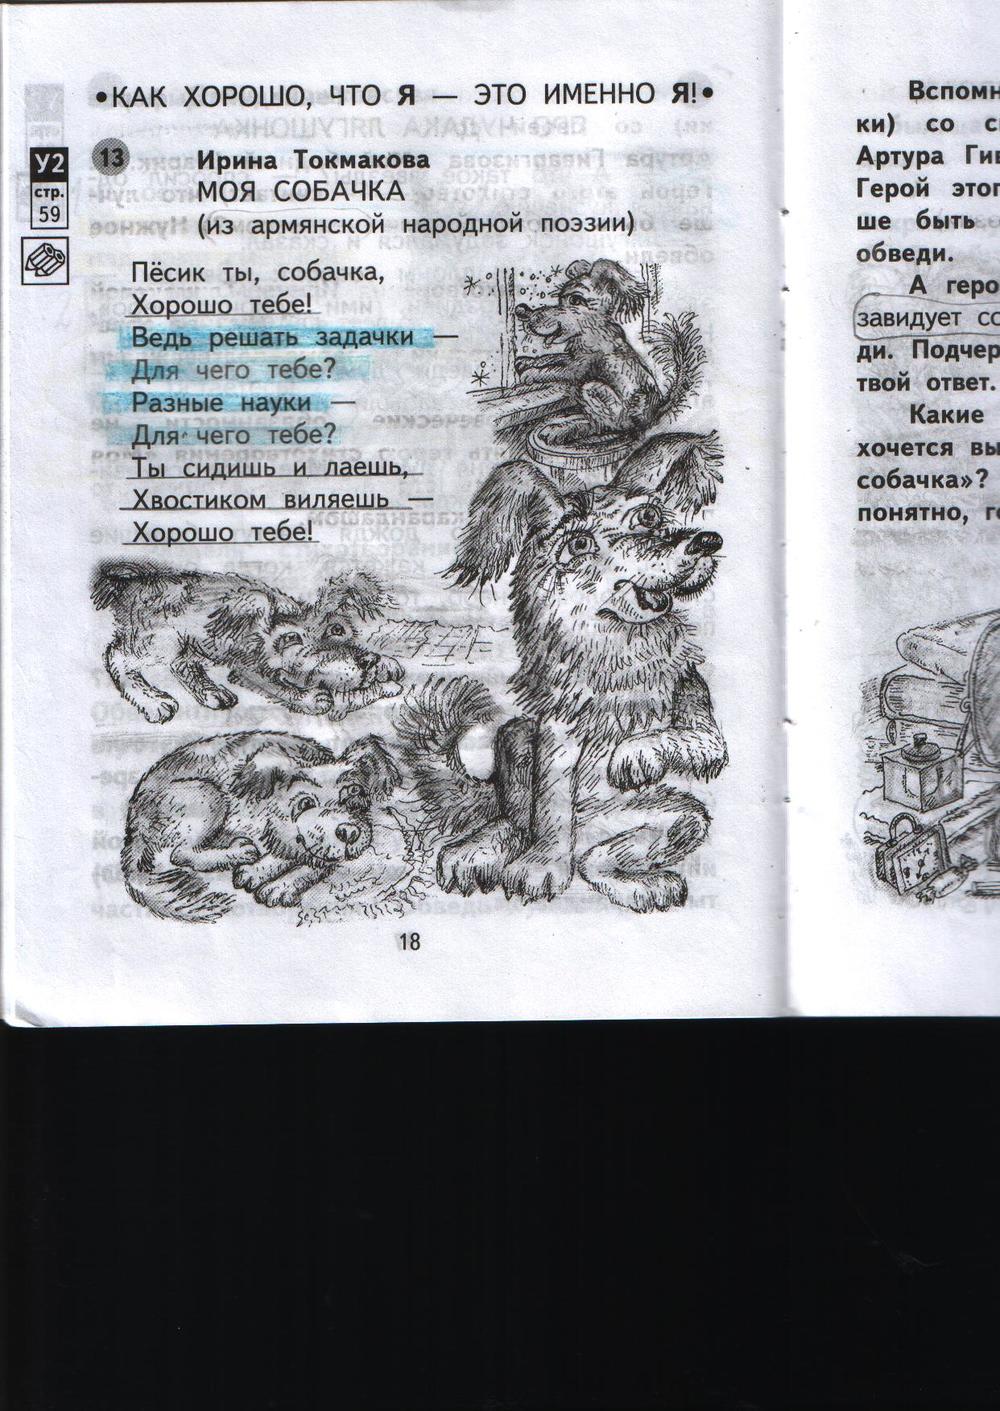 •КАК ХОРОШО, ЧТО Я — ЭТО ИМЕННО Я!•
У2
стр.
59
13
Ирина Токмакова
МОЯ СОБАЧКА
(из армянской народной поэзии)
Пёсик ты, собачка,
Хорошо тебе!
Ведь решать задачки —
Для чего тебе?
Разные науки —
Для чего тебе?
Ты сидишь и лаешь,
Хвостиком виляешь —
Хорошо тебе!
18
ки) со
Артура
Герой
ше быть
обведи.
А
завидует
ди.
твой ответ.
Какие
хочется
собачка»?
понятно,